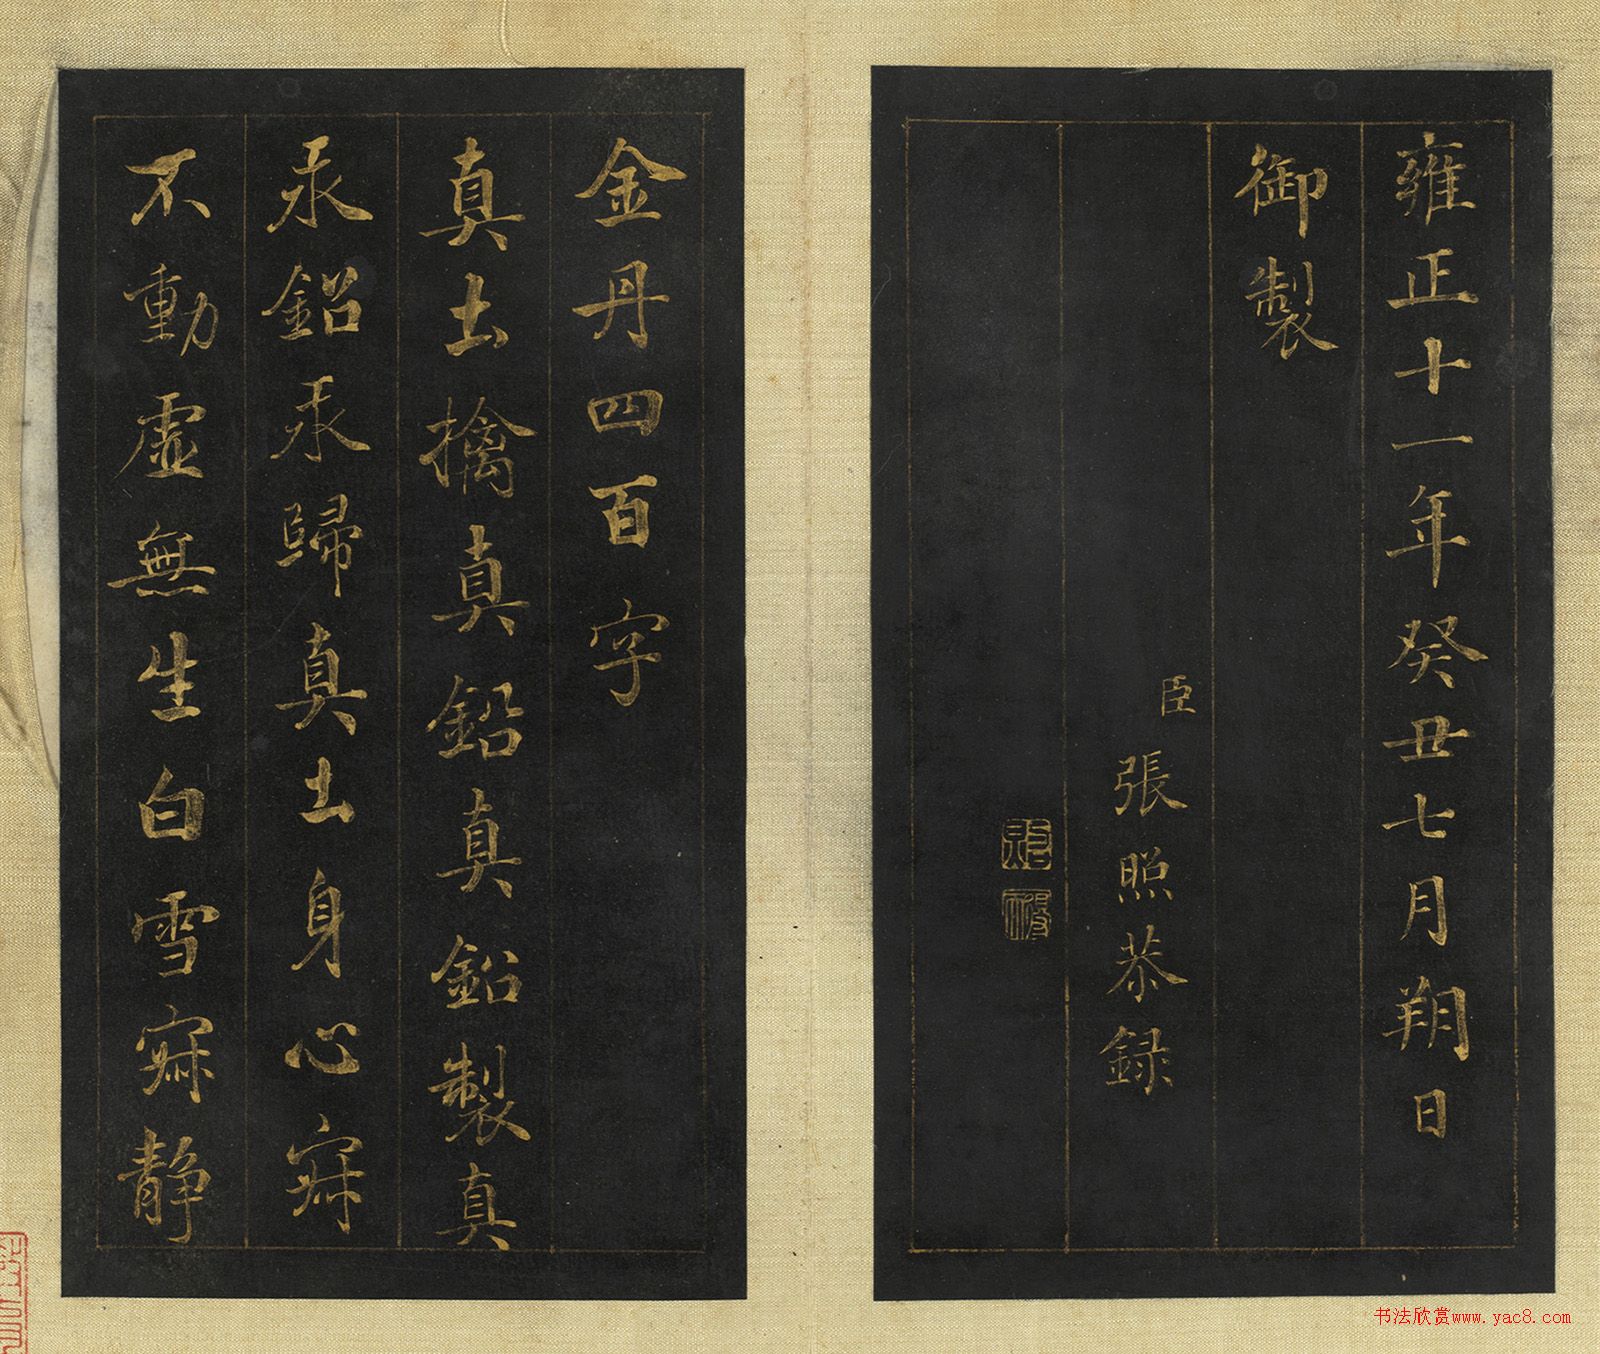 雍正十一年癸丑七月朔日
御製
臣張照恭録
金丹四百字
真土擒真鉛真鉛製真
汞鉛汞歸真土身心寂
不動虛無生白雪寂靜
书法欣赏www.yac8.com